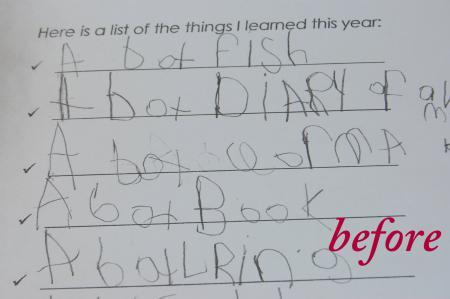 Here is a list of the things I learned this year:
A bot FISh
A bot DiARY of
A bot
A bot Book
before
A bot LRiNg